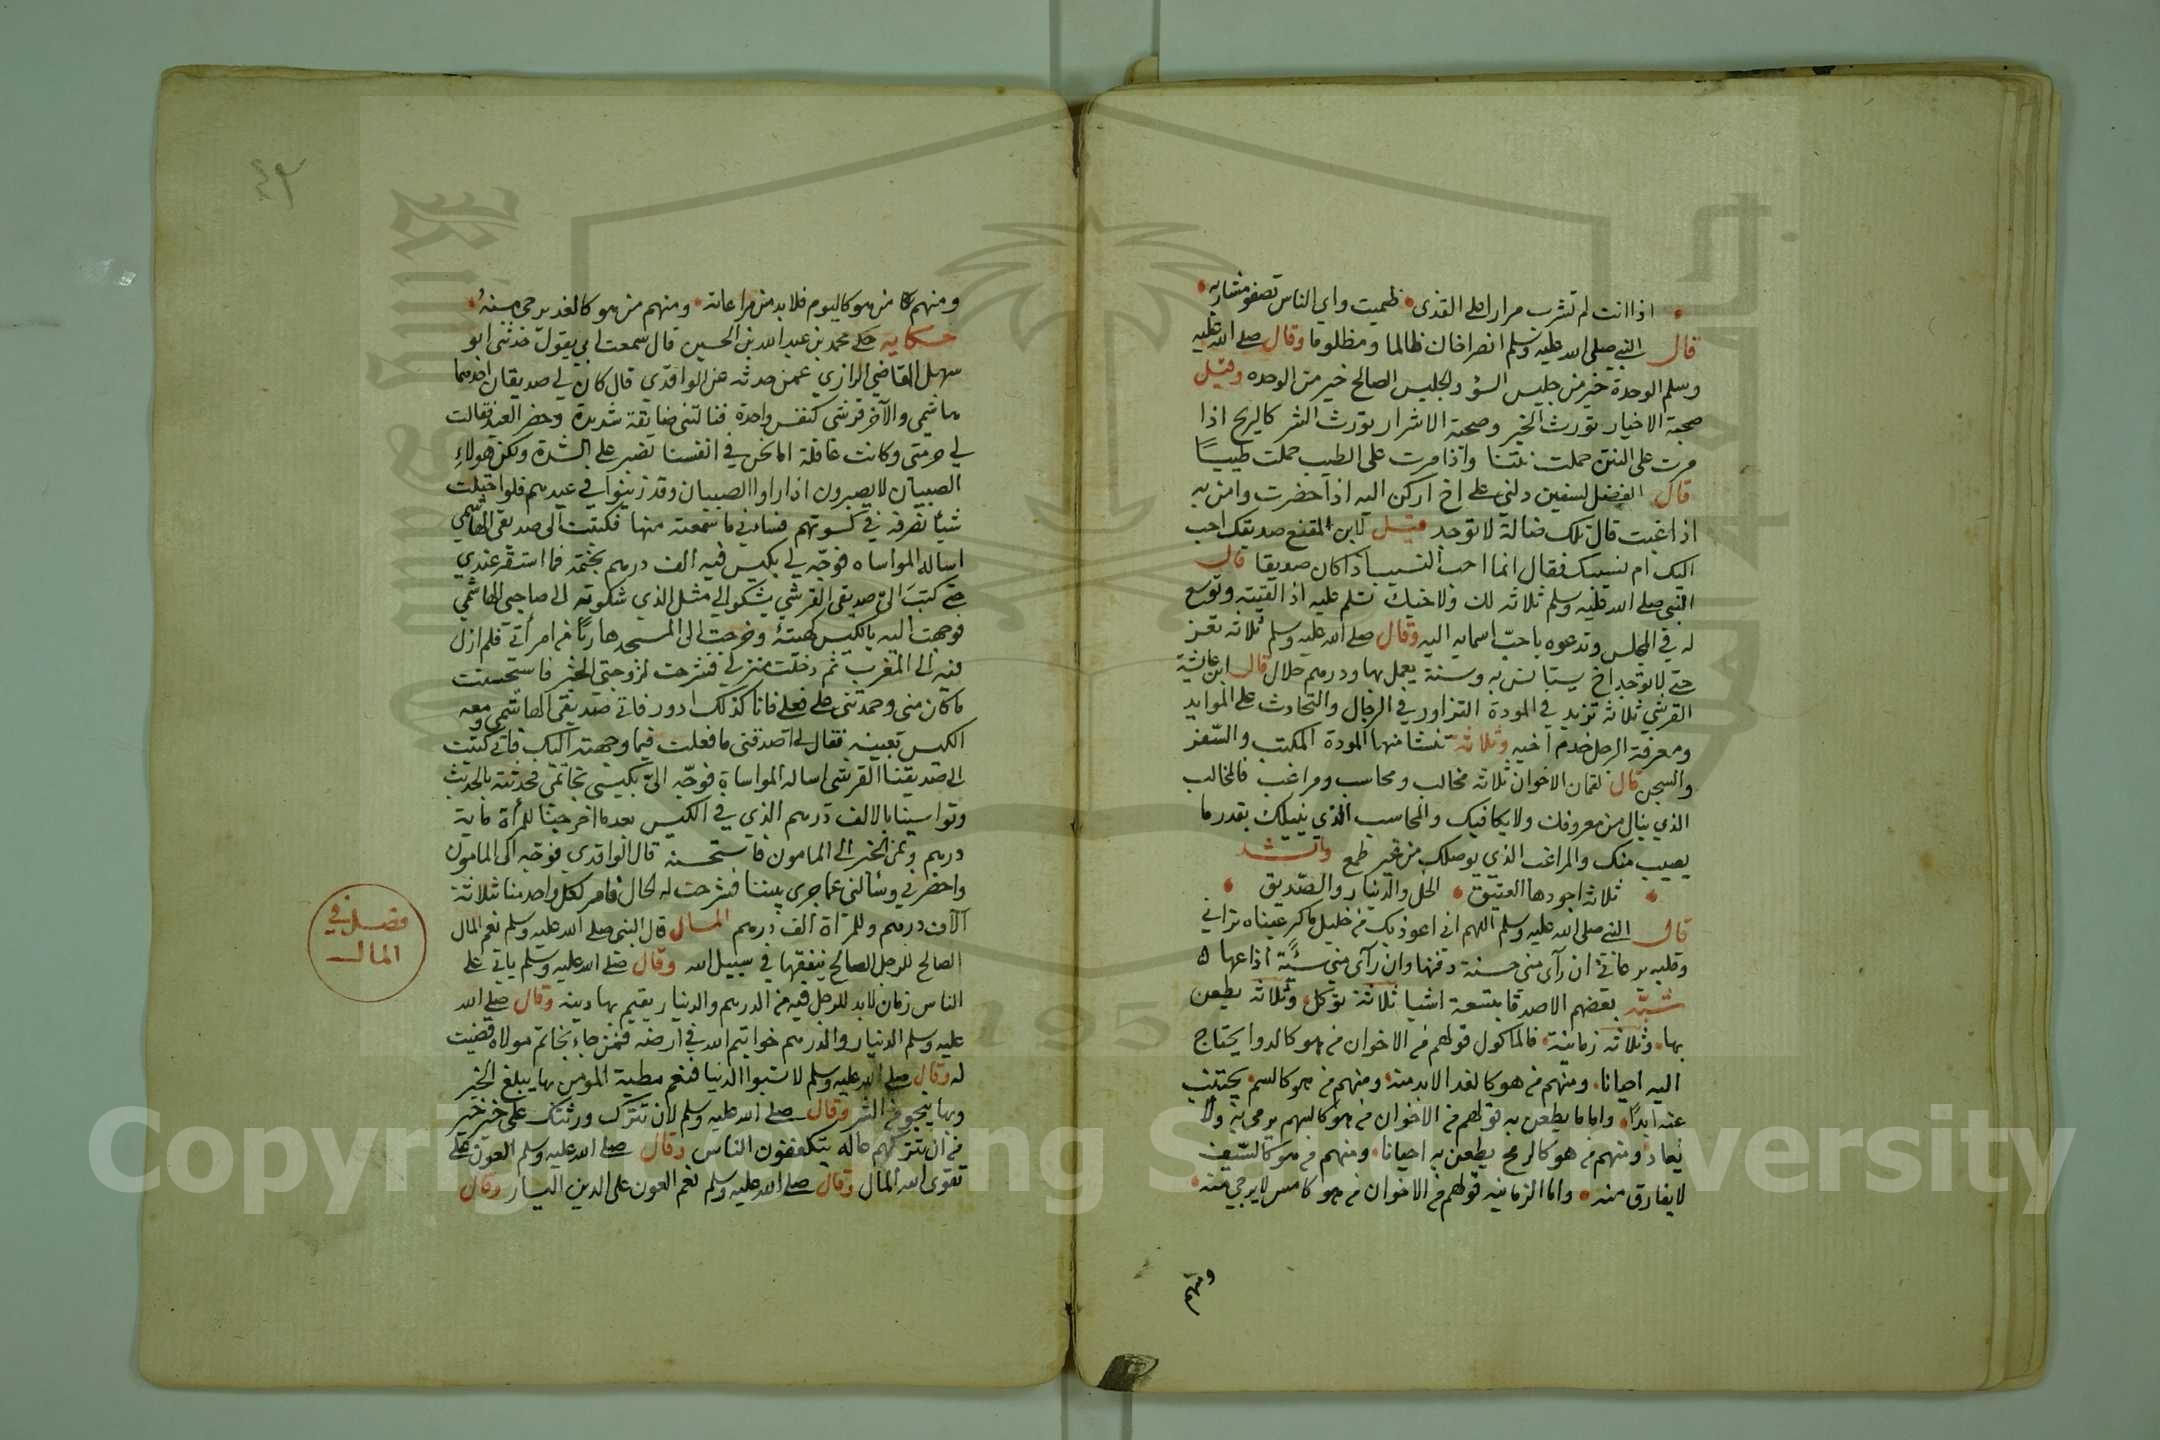 اذا انت لم تشرب مرارا على القذى ظميت واي الناس تصفو مشاربه
قال النبي صلى الله عليه وسلم انصر اخاك ظالما ومظلوما وقال صلى الله عليه
وسلم الوحدة خير من جليس السؤ والجليس الصالح خير من الوحده وقيل
صحبة الاخيار تورث الخير وصحبة الاشرار تورث الشر كالريح اذا
مرت على النتن حملت نتنا واذا مرت على الطيب حملت طيبا
قال الفضل لسفين دلني على اخ اركن اليه اذا حضرت وامن به
اذا غبت قال تلك ضالة لا توجد قيل لابن المقفع صديقك احب
اليك ام نسيبك فقال انما احب النسيب اذا كان صديقا قال
النبي صلى الله عليه وسلم ثلاثه لك ولاخيك تسلم عليه اذا لقيته وتوسع
له في المجلس وتدعوه باحب اسمايه اليه وقال صلى الله عليه وسلم ثلاثه تعز
حتى لا توجد اخ يستانس به وسنة يعمل بها ودرهم حلال قال ابن عايشة
القرشي ثلاثة تزيد في المودة التزاور في الرحال والتحادث على الموايد
ومعرفة الرجل خدم اخيه وثلاثة تنشا منها المودة المكتب والسفر
والسجن قال لقمان الاخوان ثلاثه مخالب ومحاسب ومراغب فالمخالب
الذي ينال من معروفك ولا يكافيك والمحاسب الذي ينيلك بقدر ما
يصيب منك والمراغب الذي يوصلك من غير طمع وانشد
ثلاثه اجودها العتيق الخل والدينار والصديق
قال النبي صلى الله عليه وسلم اللهم اني اعوذ بك من خليل ماكر عيناه تراني
وقلبه يرعاني ان رآى مني حسنة دفنها وان رآى مني سيئة اذاعها ه
شبه بعضهم الاصدقا بتسعة اشيا ثلاثة توكل وثلاثه يطعن
بها وثلاثه زمانية فالماكول قولهم من الاخوان من هو كالدوا يحتاج
اليه احيانا ومنهم من هو كالغذا لا بد منه ومنهم من هو كالسم يجتنب
عنه ابدا واما ما يطعن به قولهم من الاخوان من هو كالسهم يرمى به ولا
يعاد ومنهم من هو كالرمح يطعن به احيانا ومنهم من هو كالسيف
لا يفارق منه واما الزمانيه قولهم من الاخوان من هو كامس لا يرجى منه
ومنهم
٤٩
ومنهم من هو كاليوم فلا بد من مراعاته ومنهم من هو كالغد يرجى منه
حكاية حكى محمد بن عبد الله بن الحسين قال سمعت ابي يقول حدثني ابو
سهل القاضي الرازي عمن حدثه عن الواقدي قال كان لي صديقان احدهما
هاشمي والآخر قرشي كنفس واحدة فنالتني ضائقة شديدة وحضر العيد فقالت
لي حرمتي وكانت عاقلة اما نحن في انفسنا نصبر على الشدة ولكن هولاء
الصبيان لا يصبرون اذا راوا الصبيان وقد زينوا في عيدهم فلو احتلت
شيأ نصرفه في كسوتهم فساءني ما سمعته منها فكتبت الى صديقي الهاشمي
اساله المواساه فوجه لي بكيس فيه الف درهم بختمه فما استقر عندي
حتى كتب الي صديقي القرشي يشكو الي مثل الذي شكوته الى صاحبي الهاشمي
فوجهت اليه بالكيس كهيئة وخرجت الى المسجد هاربا من امرأتي فلم ازل
فيه الى المغرب ثم دخلت منزلي فشرحت لزوجتي الخبر فاستحسنت
ما كان مني وحمدتني على فعلي فانا كذلك ادور فاتى صديقي الهاشمي ومعه
الكيس بعينه فقال لي اصدقني ما فعلت فيما وجهته اليك فاني كتبت
الى صديقنا القرشي اساله المواساة فوجه الي بكيسي بخاتمي فحدثته بالحديث
وتواسينا بالالف درهم الذي في الكيس بعدما اخرجنا للمرأة ماية
درهم ونمى الخبر الى المامون فاستحسنه قال الواقدي فوجه الى المامون
واحضرني وسألني عما جرى بيننا فشرحت له الحال فامر لكل واحد منا ثلاثة
آلاف درهم وللمرأة الف درهم المال قال النبي صلى الله عليه وسلم نعم المال
الصالح للرجل الصالح ينفقها في سبيل الله وقال صلى الله عليه وسلم ياتي على
الناس زمان لا بد للرجل فيه من الدرهم والدينار يقيم بها دينه وقال صلى الله
عليه وسلم الدينار والدرهم خواتيم الله في ارضه فمن جاء بخاتم مولاه قضيت
له وقال صلى الله عليه وسلم لا تسبوا الدنيا فنعم مطية المومن بها يبلغ الخير
وبها ينجو من الشر وقال صلى الله عليه وسلم لان تترك ورثتك على خير خير
من ان تتركهم عالة يتكففون الناس وقال صلى الله عليه وسلم العون على
تقوى الله المال وقال صلى الله عليه وسلم نعم العون على الدين اليسار وقال
فصل في
المال
Copyright © King Saud University
1957